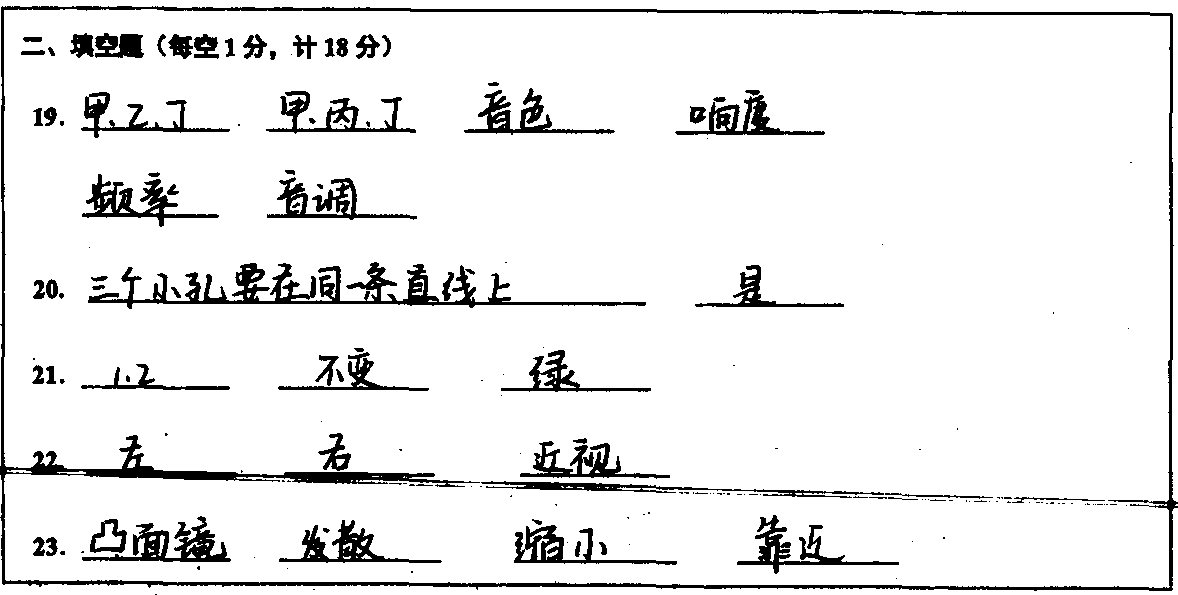 二、填空题（每空1分，计18分）
19. 甲、乙、丁 甲、丙、丁 音色 响度
频率 音调
20. 三个小孔要在同一条直线上 是
21. 1.2 不变 绿
22. 左 右 近视
23. 凸面镜 发散 缩小 靠近